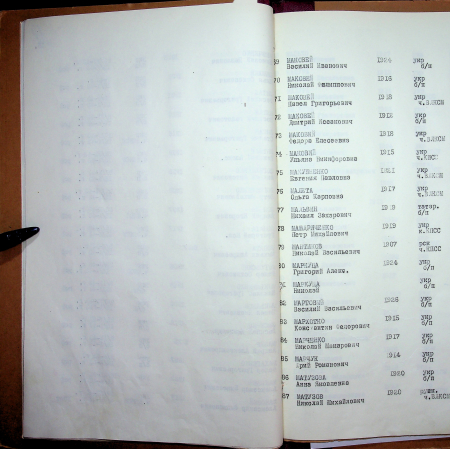 69 МАКОВЕЙ 1924 укр
Василий Иванович б/п
70 МАКОВЕЙ 1916 укр
Николай Филиппович б/п
71 МАКОВЕЙ укр
Павел Григорьевич ч.ВЛКСМ
72 МАКОВЕЙ 1912 укр
Дмитрий б/п
73 МАКОВЕЙ 1918 укр
Федора Елисеевна ч.ВЛКСМ
74 МАКОВИЙ 1915 укр
Ульяна Никифоровна ч.КПСС
75 укр
Евгения Павловна ч.ВЛКСМ
76 МАЛЕТА 1917 укр
Ольга Карповна ч.ВЛКСМ
77 татар.
Михаил Захарович б/п
78 1909 укр
Петр Михайлович к.КПСС
79 МАРТЫНОВ 1907 рск
Николай Васильевич ч.КПСС
80 МАРКУЦА 1924 укр
Григорий Алекс. б/п
81 МАРКУЦА
Николай
82 МАРТОВОЙ 1926 укр
Василий Васильевич б/п
83 МАРХОТКО 1915 укр
Константин Федорович б/п
84 МАРЧЕНКО 1917 укр
Николай Макарович б/п
85 МАРЧУК 1914 укр
Юрий Романович б/п
86 МАТУЗОВА 1920 укр
Анна Яковлевна б/п
87 МАТУЗОВ 1920
Николай Михайлович ч.ВЛКСМ